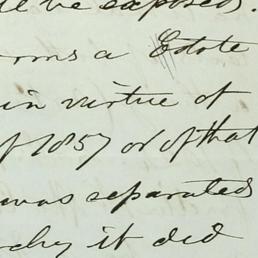 be exposed.
a Estate
in virtue of
of 1857 or of that
was separated
it did